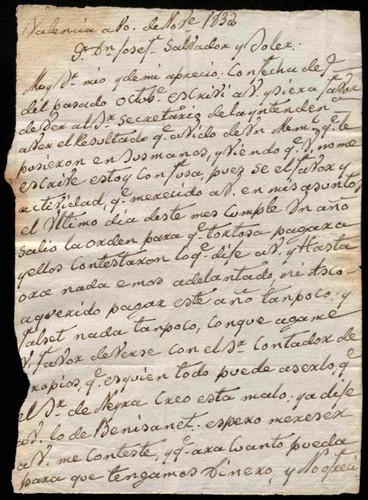 Valencia a 10. de No. de 1832
Sr. Dn Josef. Salvador y Soler.
Muy Sr. mio y de mi aprecio: Con fecha de
del pasado Octube. escrivi a V. ysiera favor
de Ver al Sr. Secretario de la yntenden
a ver el Resultado q. avido de Un Mem. q. le
pusieron en sus manos, y Viendo q. V. no me
escrive estoy Confusa, puez se el favor y
actividad, q. merecido a V. en mis asuntos,
el Ultimo dia deste mes Cumple Un año
salio la orden para q. tortosa pagara
y ellos Contestaron lo q. dije a V. y Hasta
ora nada emos adelantado, ni Asco
a querido pagar este año tanpoco: y
falset nada tanpoco, Conque agame
V. favor de Verse con el Sr. Contador de
ropios, q. es quien todo puede aserlo, q.
el Sr. de Negra Creo esta malo: ya dije
a V. lo de Benisanet: espero mereser
a V. me Conteste, y q. ara Cuanto pueda
para que tengamos Dinero, y No ofreci